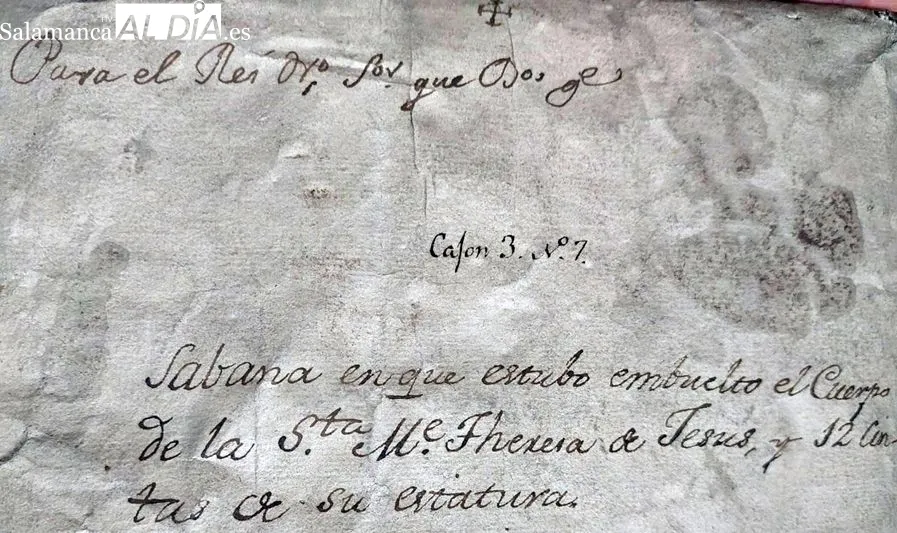 SalamancaALDÍA.es
Para el Rei Nro Sor. que Dos ge
Cajon 3. No. 7.
Sabana en que estubo embuelto el Cuerpo
de la S.ta Me. Theresa de Jesus, y 12 Cin-
tas de su estatura.